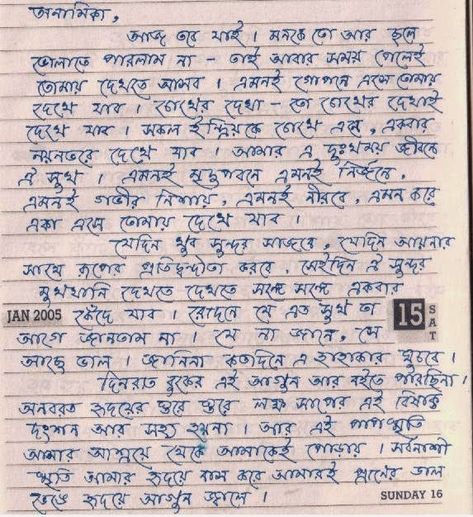 অনামিকা,
আজ তবে যাই। মনকে তো আর ছলে
ভোলাতে পারলাম না - তাই আবার সময় পেলেই
তোমায় দেখতে আসব। এমনই গোপনে এসে তোমায়
দেখে যাব। চোখের দেখা - তো চোখের দেখাই
দেখে যাব। সকল ইন্দ্রিয়কে চোখে এনে, একবার
নয়নভরে দেখে যাব। আমার এ দুঃখময় জীবনে
ঐ সুখ। এমনই মৃদুপবনে এমনই নির্জনে,
এমনই গভীর নিশায়, এমনই নীরবে, এমন করে
একা এসে তোমায় দেখে যাব।
যেদিন খুব সুন্দর সাজবে, যেদিন আয়নার
সাথে রূপের প্রতিদ্বন্দ্বীতা করবে, সেইদিন ঐ সুন্দর
মুখখানি দেখতে দেখতে সঙ্গে সঙ্গে একবার
JAN 2005 কেঁদে যাব। রোদনে যে এত সুখ তা 15 SAT
আগে জানতাম না। যে না জানে, সে
আছে ভাল। জানিনা কতদিনে এ হাহাকার ঘুচবে।
দিনরাত বুকের এই আগুন আর বইতে পারছিনা।
অনবরত হৃদয়ের স্তরে স্তরে লক্ষ সাপের এই বিষাক্ত
দংশন আর সহ্য হয়না। আর এই পাপস্মৃতি
আমার আশ্রয়ে থেকে আমাকেই পোড়ায়। সর্বনাশী
স্মৃতি আমার হৃদয়ে বাস করে আমারই
ভেঙে হৃদয়ে আগুন জ্বালে। SUNDAY 16